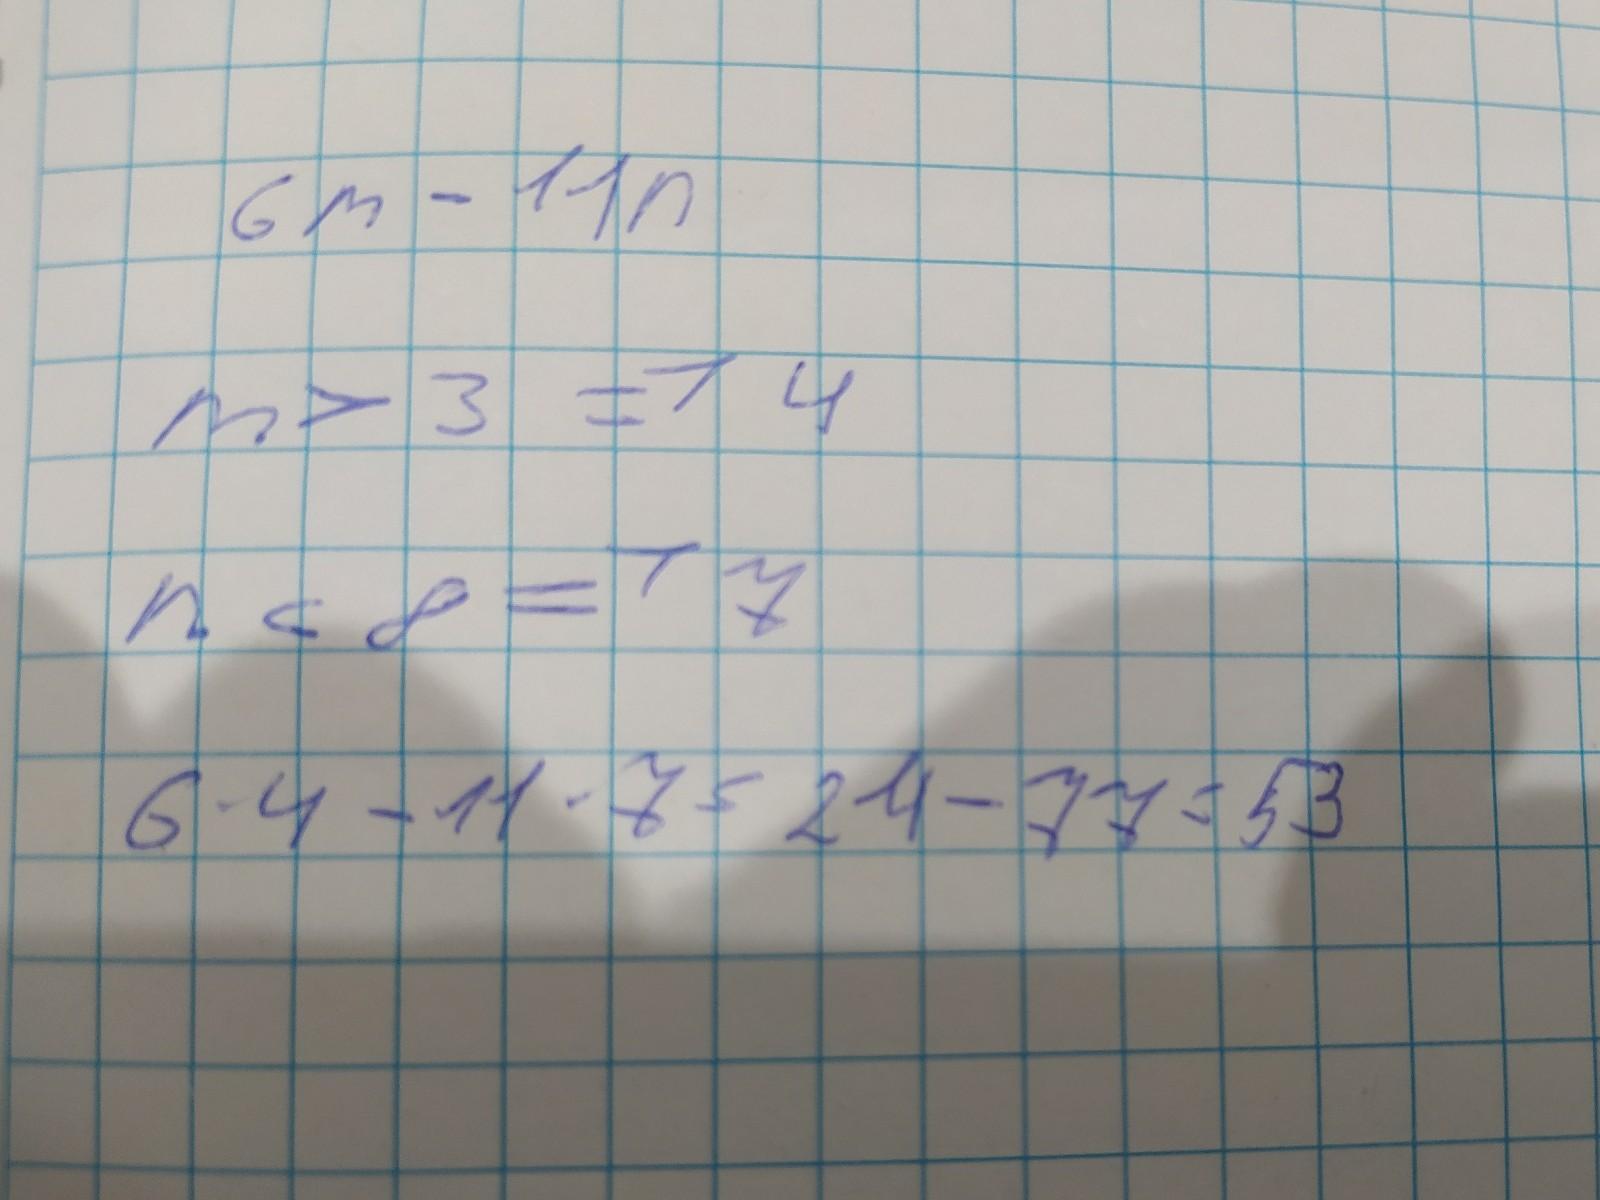 6m - 11n
m > 3 => 4
n < 8 => 7
6·4 - 11·7 = 24 - 77 = 53